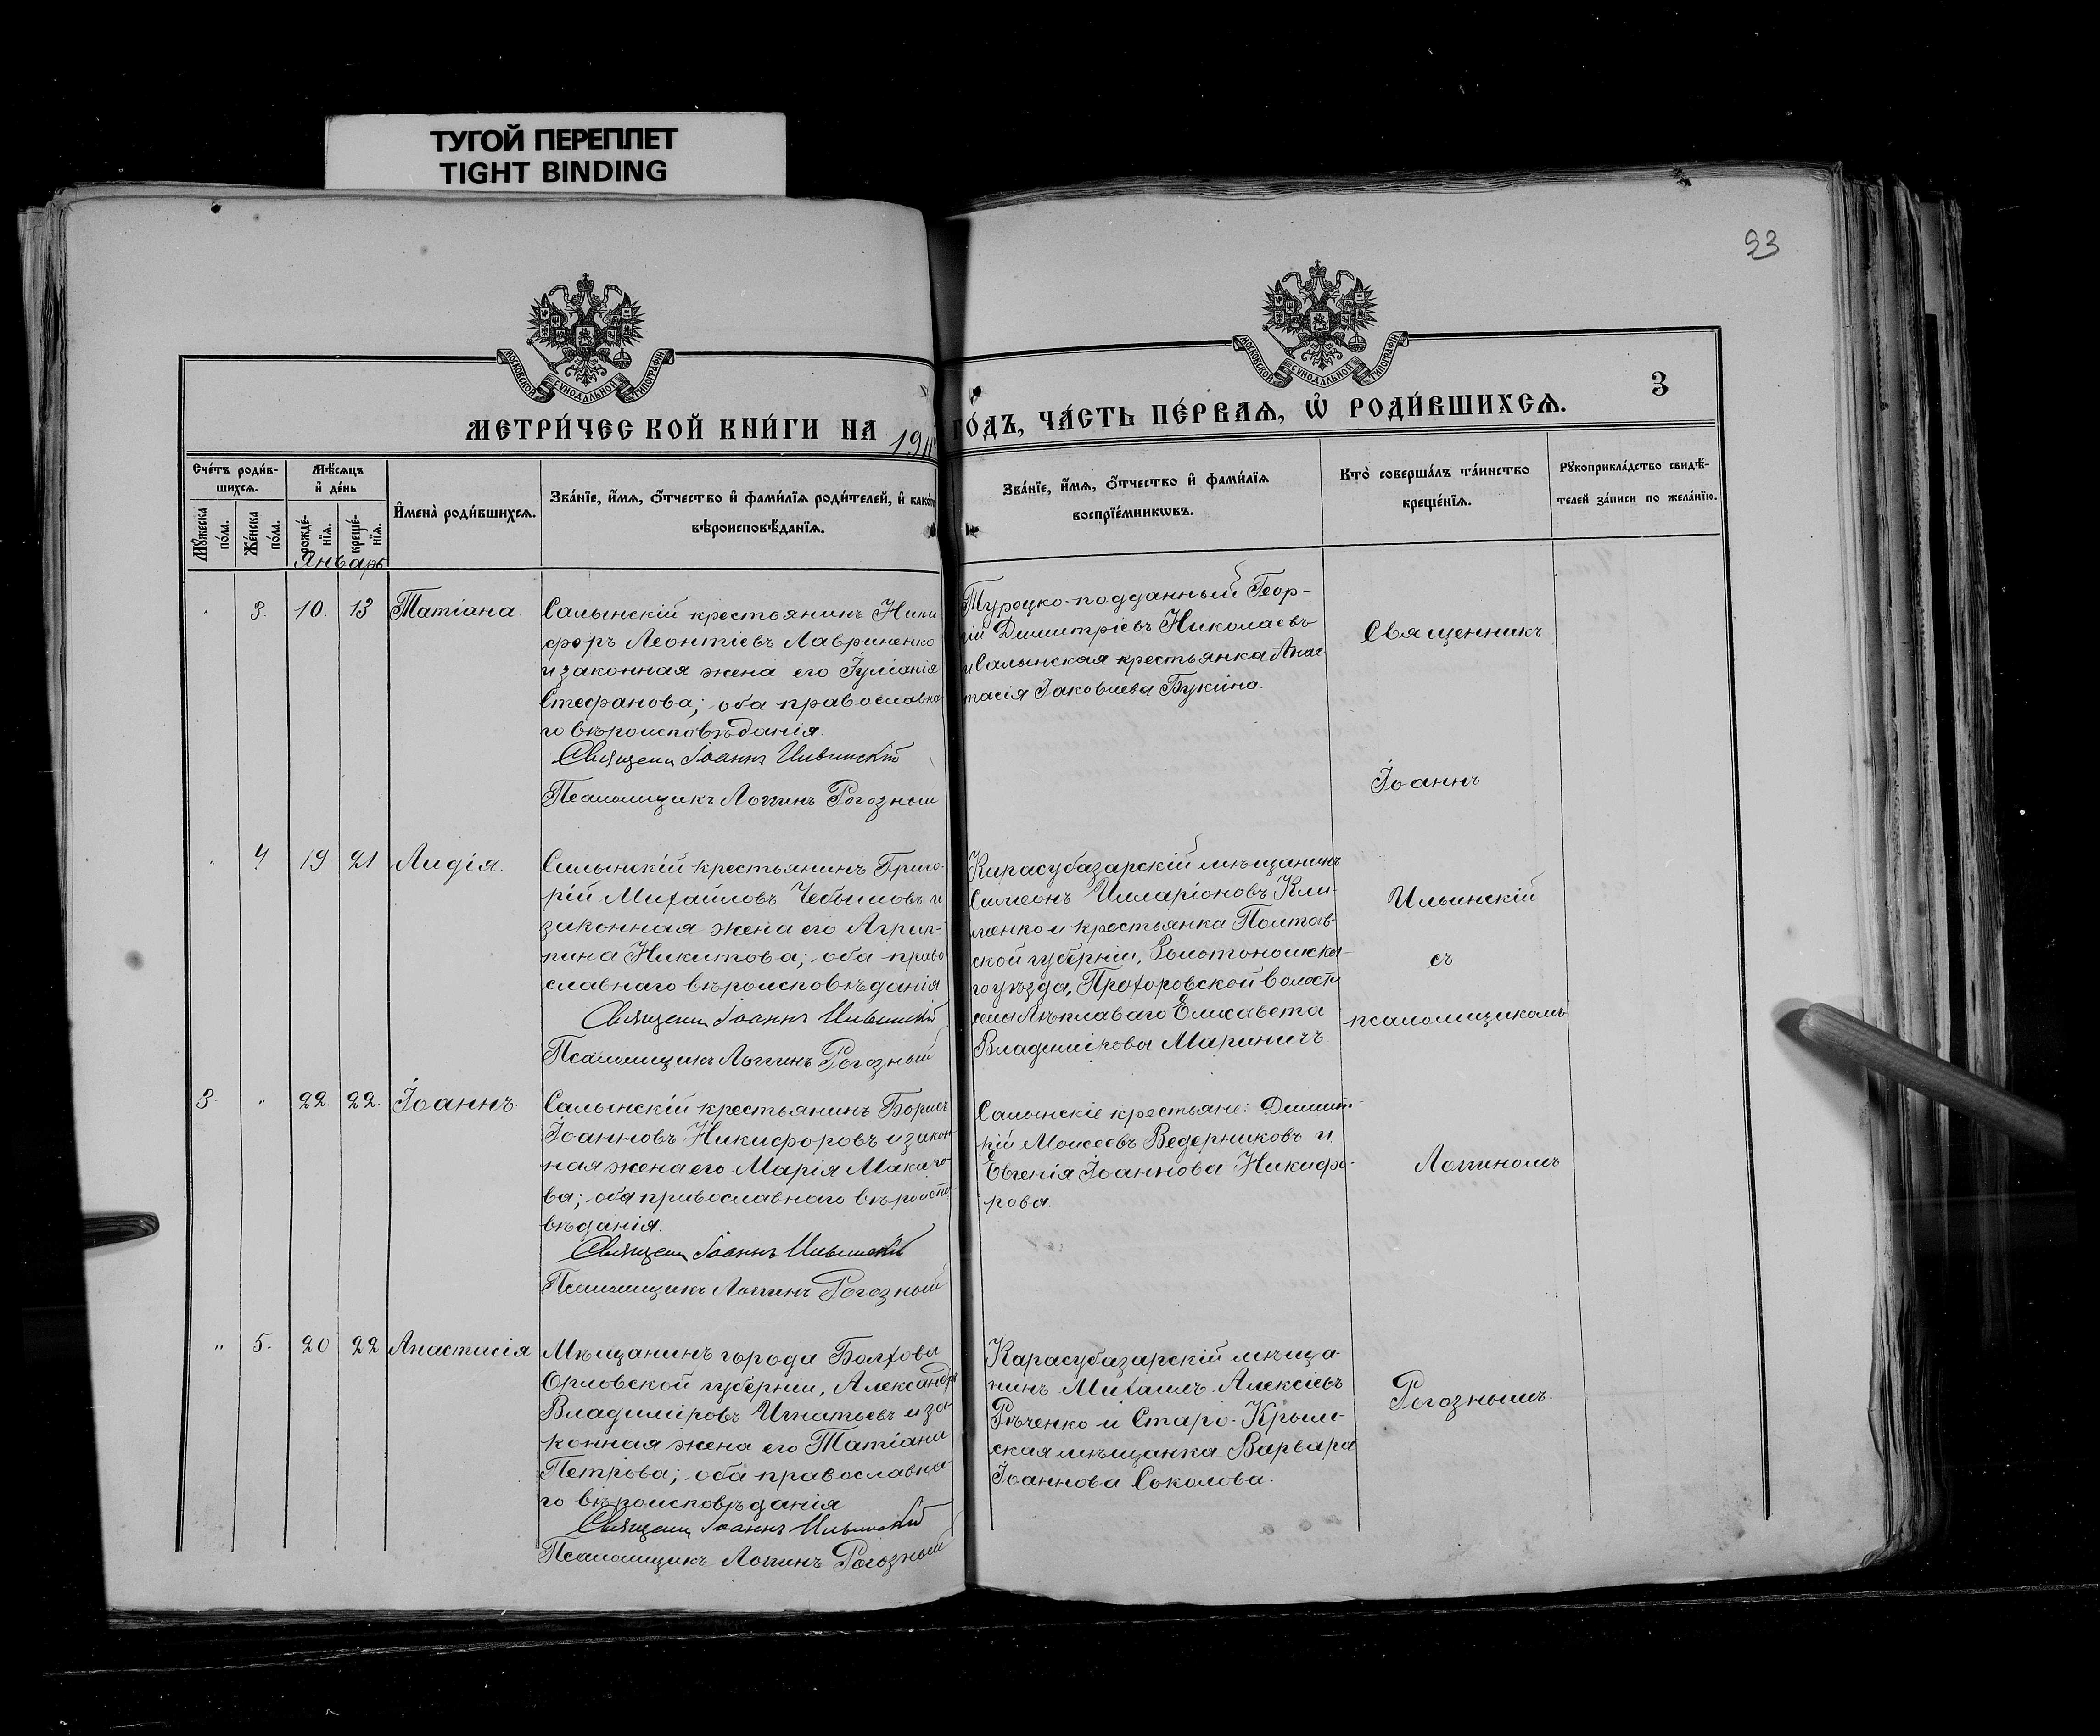 ТУГОЙ ПЕРЕПЛЕТ
TIGHT BINDING
93
МОСКОВСКОЙ СУНОДАЛЬНОЙ ТИПОГРАФІИ
МОСКОВСКОЙ СУНОДАЛЬНОЙ ТИПОГРАФІИ
3
МЕТРИ́ЧЕСКОЙ КНИ́ГИ НА 191 ГО́ДЪ, ЧА́СТЬ ПЕ́РВАѦ, Ѡ҆ РОДИ́ВШИХСѦ.
Сче́тъ роди́в-
шихсѧ.
Мꙋ́жеска по́ла.
Же́нска по́ла.
Мѣ́сѧцъ
и҆ де́нь
рожде́-
нїѧ.
креще́-
нїѧ.
Январь
И҆мена̀ роди́вшихсѧ.
Зва́нїе, и҆́мѧ, ѻ҆́тчество и҆ фами́лїѧ роди́телей, и҆ како́гѡ
вѣроисповѣ́данїѧ.
Зва́нїе, и҆́мѧ, ѻ҆́тчество и҆ фами́лїѧ
воспрїе́мникѡвъ.
Кто̀ соверша́лъ та́инство
креще́нїѧ.
Рꙋкоприкла́дство свидѣ́-
телей за́писи по жела́нїю.
3. 10. 13 Татіана.
Салынскій крестьянинъ Ники
форъ Леонтіевъ Лавриненко
и законная жена его Іуліанія
Стефанова; оба православна
го вѣроисповѣданія
Священ Іоаннъ Ильинскій
Псаломщикъ Логгинъ Рогозный
Турецко-подданный Геор-
гій Димитріевъ Николаевъ
и Салынская крестьянка Анас-
тасія Іаковлева Букина.
4 19 21 Лидія.
Салынскій крестьянинъ Григо-
рій Михайловъ Чебышовъ и
законная жена его Агрип-
пина Никитова; оба право
славнаго вѣроисповѣданія
Священ Іоаннъ Ильинскій
Псаломщикъ Логгинъ Рогозный
Карасубазарскій мѣщанинъ
Симеонъ Илларіоновъ Кли-
менко и крестьянка Полтав-
ской губерніи, Золотоношска-
го уѣзда, Прохоровской волости
Елисавета
Владимірова Мариничъ
3. " 22. 22. Іоаннъ
Салынскій крестьянинъ Борисъ
Іоанновъ Никифоровъ и закон
ная жена его Марія Макаро-
ва; оба православнаго вѣроиспо-
вѣданія.
Священ Іоаннъ Ильинскій
Псаломщикъ Логгинъ Рогозный
Салынскіе крестьяне: Димит-
рій Моисеевъ Ведерниковъ и
Евгенія Іоаннова Никифо-
рова.
" 5. 20 22 Анастасія
Мѣщанинъ города Болхова
Орловской губерніи, Александръ
Владиміровъ Игнатьевъ и за-
конная жена его Татіана
Петрова; оба православна-
го вѣроисповѣданія
Священ Іоаннъ Ильинскій
Псаломщикъ Логгинъ Рогозный
Карасубазарскій мѣща-
нинъ Михаилъ Алексіевъ
Рѣченко и Старо-Крым-
ская мѣщанка Варвара
Іоаннова Соколова.
Священникъ
Іоаннъ
Ильинскій
съ
псаломщикомъ
Логгиномъ
Рогознымъ.